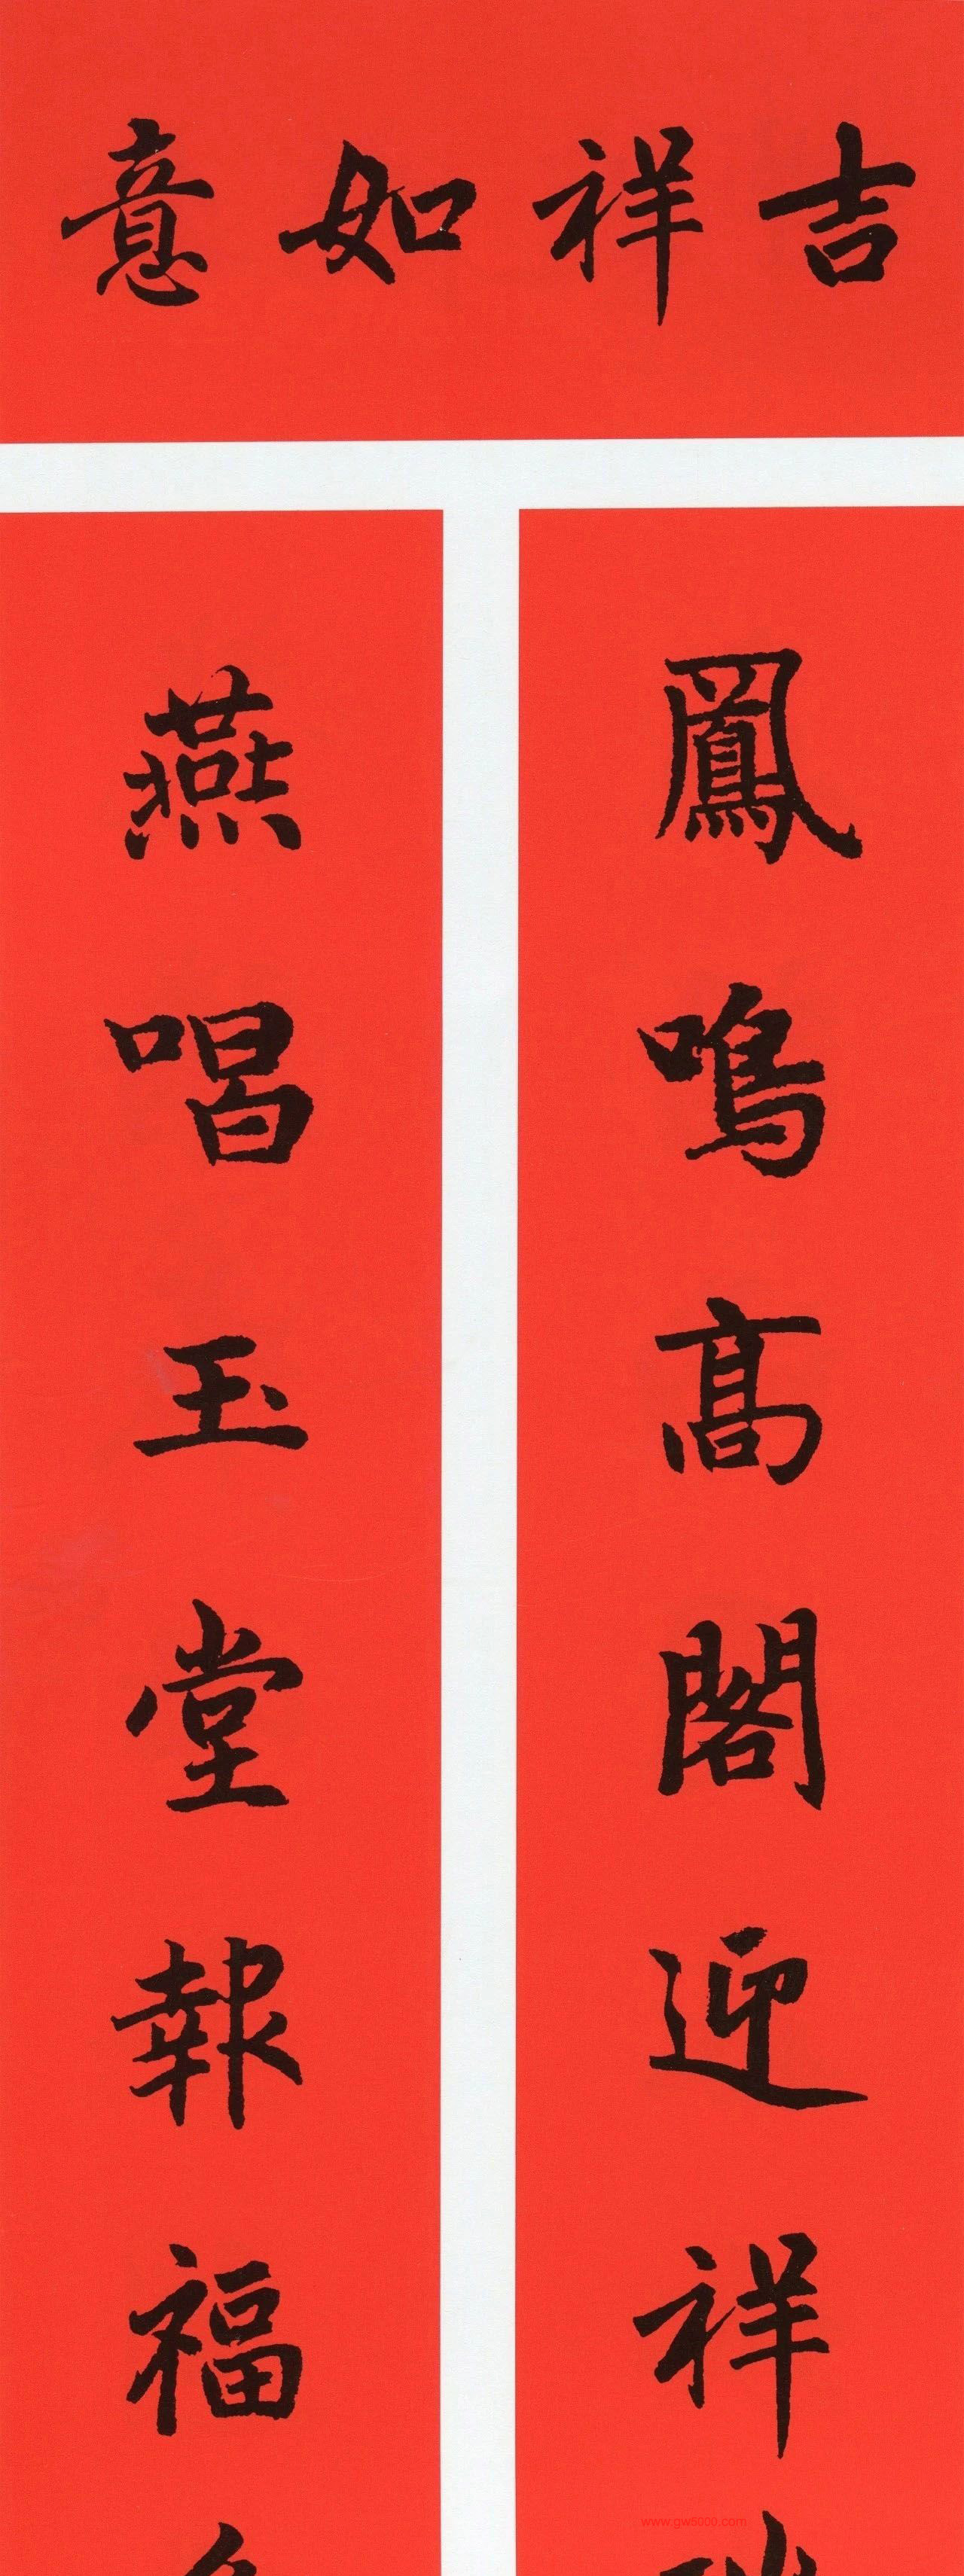 吉祥如意
鳳鳴高閣迎祥
燕唱玉堂報福
www.gw5900.com